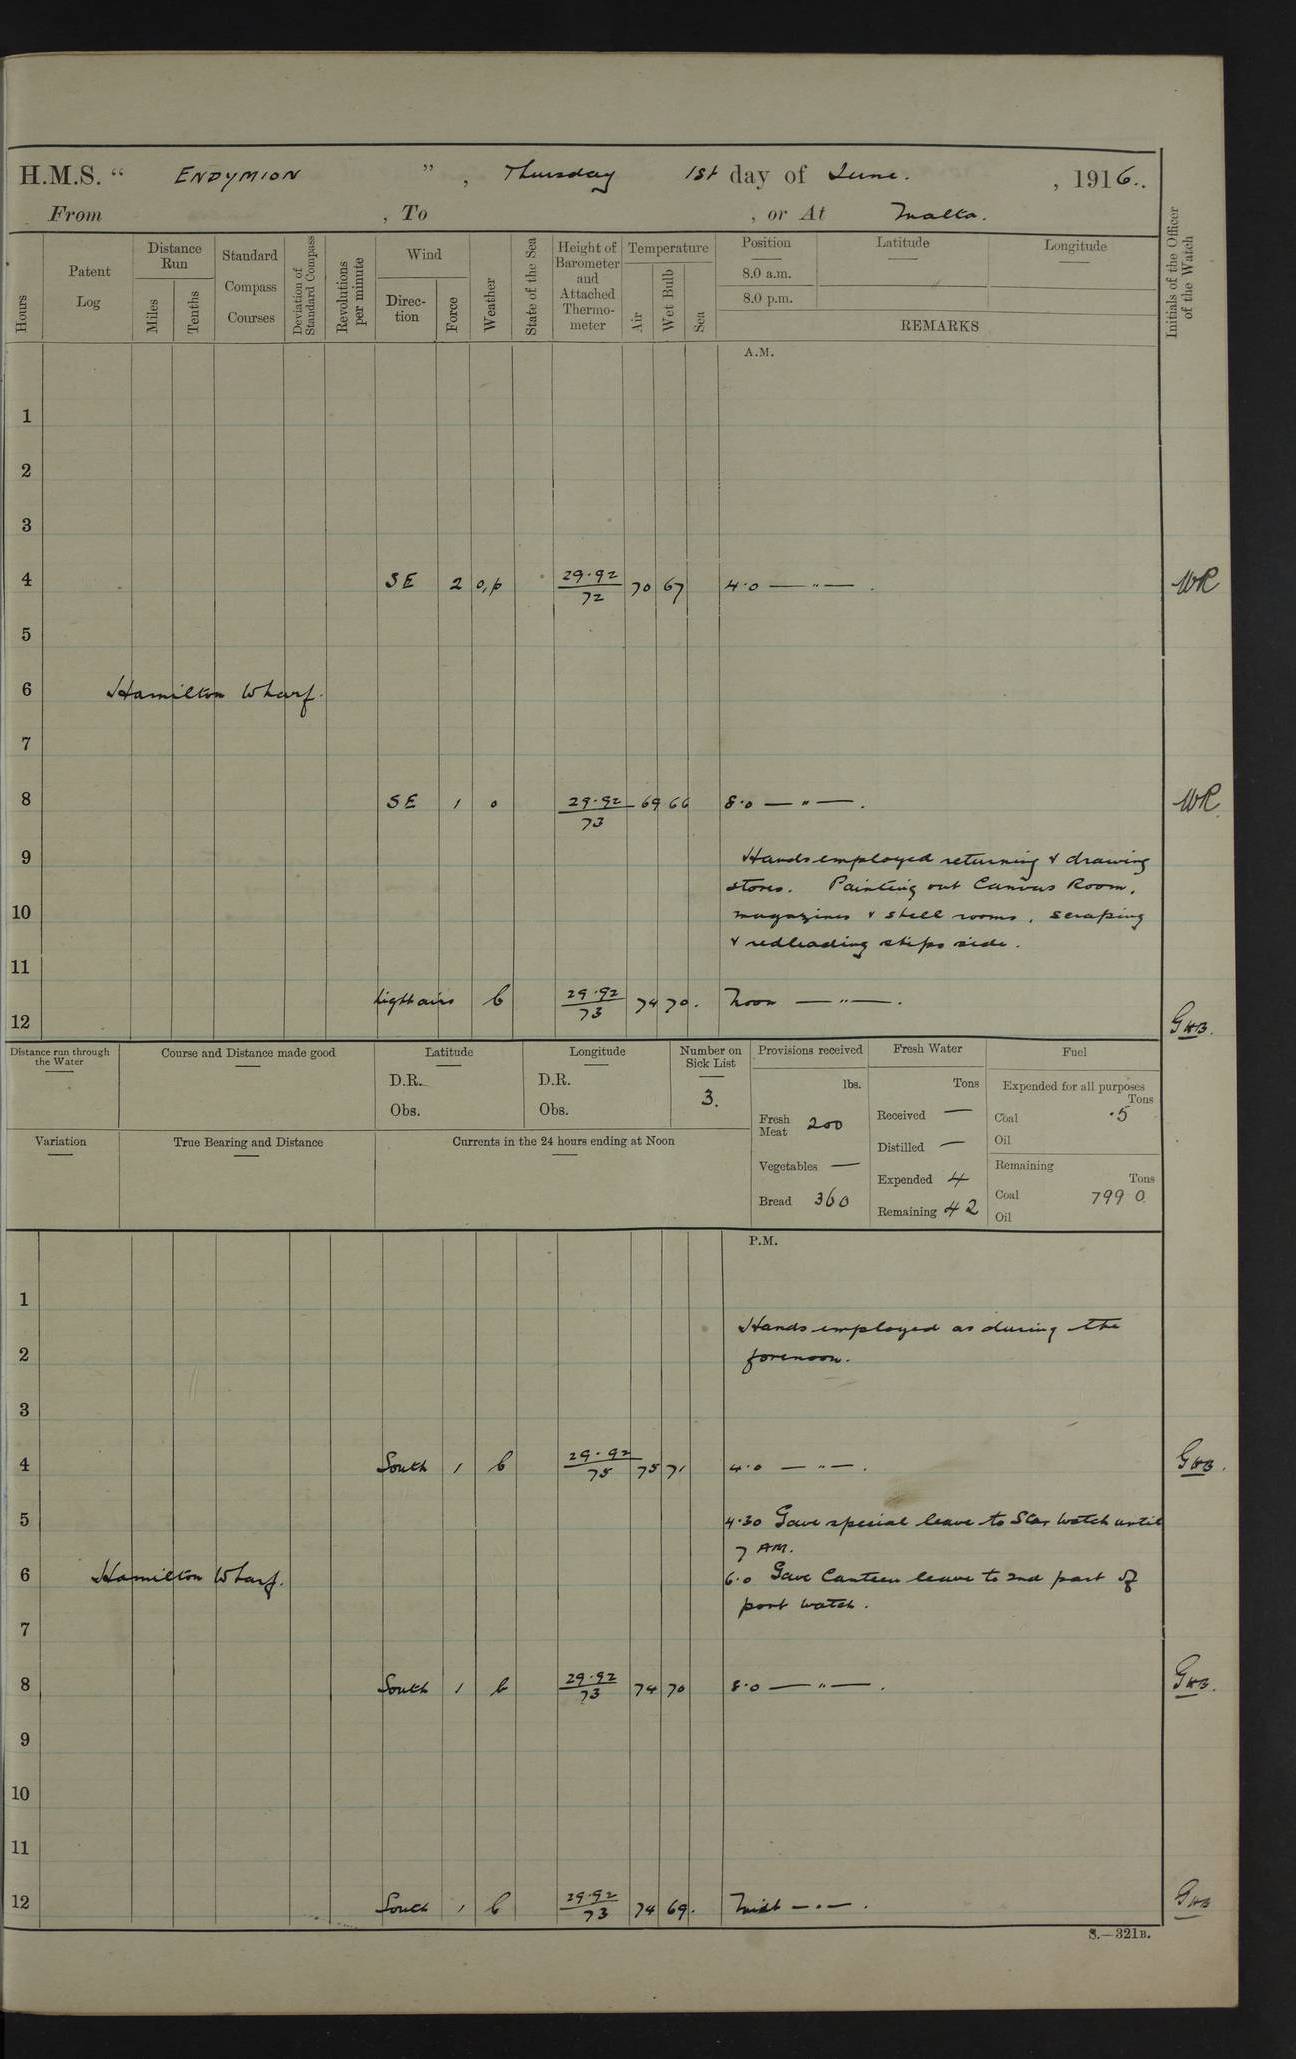 H.M.S. “ ENDYMION ” , Thursday 1st day of June. , 1916..
From , To , or At Malta.
Hours
Patent Log
Distance Run
Miles
Tenths
Standard Compass Courses
Deviation of Standard Compass
Revolutions per minute
Wind
Direc-tion
Force
Weather
State of the Sea
Height of Barometer and Attached Thermo-meter
Temperature
Air
Wet Bulb
Sea
Position
8.0 a.m.
8.0 p.m.
Latitude
Longitude
REMARKS
Initials of the Officer of the Watch
A.M.
1
2
3
4 SE 2 o,p 29.92/72 70 67 4.0 — " — . WR
5
6 Hamilton Wharf.
7
8 SE 1 o 29.92/73 69 66 8.0 — " — . WR.
9 Hands employed returning & drawing
stores. Painting out Canvas Room,
10 magazines & shell rooms, scraping
& redleading ships side.
11
12 Light airs b 29.92/73 74 70. Noon — " — . GHB.
Distance run through the Water
Course and Distance made good
Latitude
D.R.
Obs.
Longitude
D.R.
Obs.
Number on Sick List
3.
Provisions received
lbs.
Fresh Meat 200
Vegetables —
Bread 360
Fresh Water
Tons
Received —
Distilled —
Expended 4
Remaining 42
Fuel
Expended for all purposes
Tons
Coal .5
Oil
Remaining
Tons
Coal 799 0
Oil
Variation
True Bearing and Distance
Currents in the 24 hours ending at Noon
P.M.
1
Hands employed as during the
2 forenoon.
3
4 South 1 b 29.92/75 75 71 4.0 — " — . GHB.
5 4.30 Gave special leave to Star Watch until
7 AM.
6 Hamilton Wharf. 6.0 Gave Canteen leave to 2nd part of
port watch.
7
8 South 1 b 29.92/73 74 70 8.0 — " — . GHB.
9
10
11
12 South 1 b 29.92/73 74 69. Midt — " — . GHB
S.—321B.